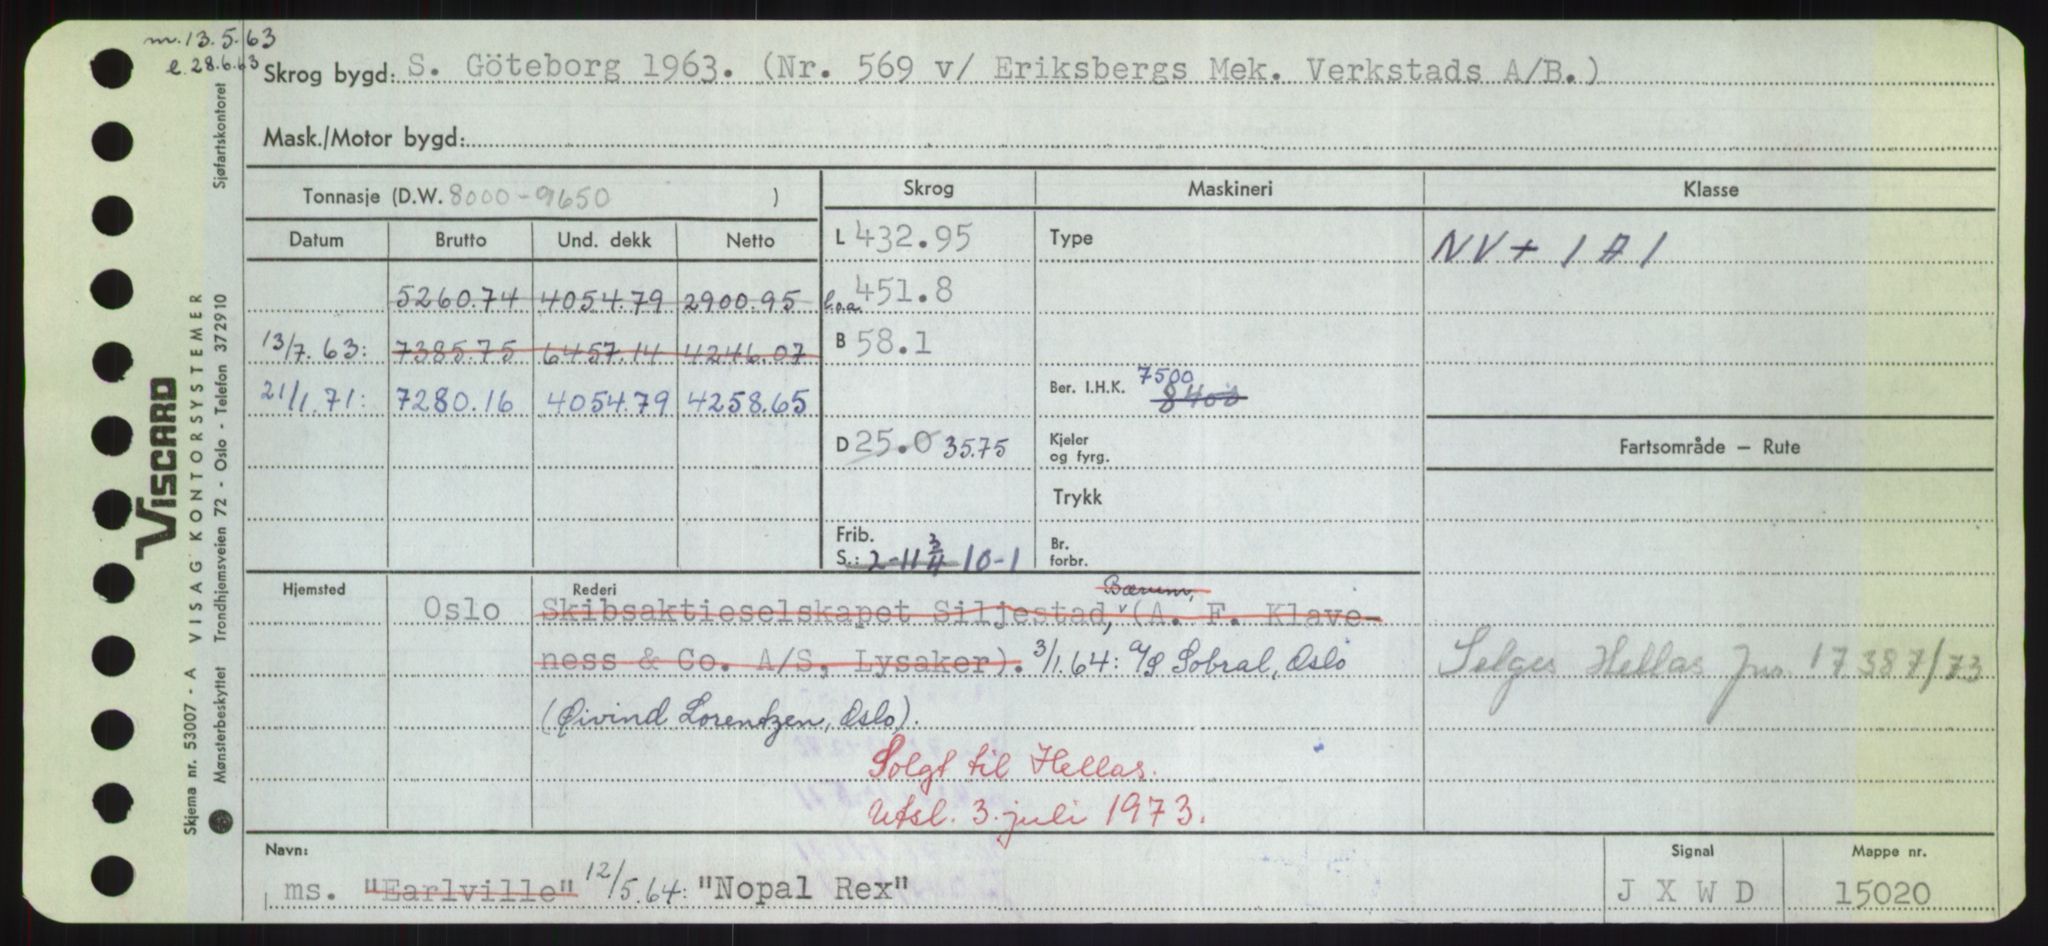 m. 13.5.63
e. 28.6.63
Skrog bygd: S. Göteborg 1963. (Nr. 569 v/ Eriksbergs Mek. Verkstads A/B.)
Mask./Motor bygd:
Tonnasje (D.W. 8000-9650 ) Skrog Maskineri Klasse
Datum Brutto Und. dekk Netto L 432.95 Type NV + 1 A 1
5260.74 4054.79 2900.95 l.o.a. 451.8
13/7.63: 7385.75 6457.14 4246.07 B 58.1
21/1.71: 7280.16 4054.79 4258.65 Ber. I.H.K. 7500 8400
D 25.0 35.75 Kjeler og fyrg. Fartsområde — Rute
Trykk
Frib. S.: 2-11 3/4 10-1 Br. forbr.
Hjemsted Rederi Bærum,
Oslo Skibsaktieselskapet Siljestad, (A. F. Klave-
ness & Co. A/S, Lysaker). 3/1.64: A/S Sobral, Oslo
Selges Hellas Jnr. 17387/73
(Øivind Lorentzen, Oslo).
Solgt til Hellas.
Utsl. 3. juli 1973.
Navn: Signal Mappe nr.
ms. "Earlville" 12/5.64: "Nopal Rex" J X W D 15020
Skjema nr. 53007 - A VISAG KONTORSYSTEMER
VISCARD
Mønsterbeskyttet Trondhjemsveien 72 - Oslo - Telefon 372910 Sjøfartskontoret